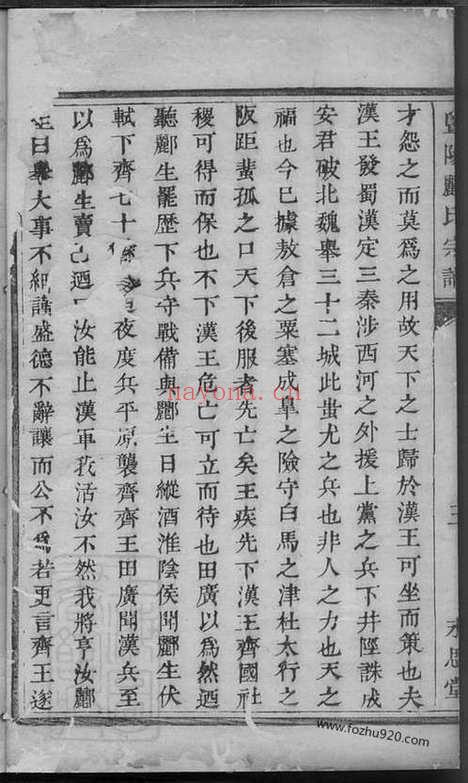 暨陽酈氏宗譜
三
永思堂
才怨之而莫為之用故天下之士歸於漢王可坐而策也夫
漢王發蜀漢定三秦涉西河之外援上黨之兵下井陘誅成
安君破北魏舉三十二城此蚩尤之兵也非人之力也天之
福也今已據敖倉之粟塞成臯之險守白馬之津杜太行之
阪距蜚孤之口天下後服者先亡矣王疾先下漢王齊國社
稷可得而保也不下漢王危亡可立而待也田廣以為然迺
聽酈生罷歷下兵守戰備與酈生日縱酒淮陰侯聞酈生伏
軾下齊七十 夜度兵平原襲齊齊王田廣聞漢兵至
以為酈生賣己迺 汝能止漢軍我活汝不然我將亨汝酈
生曰舉大事不細謹盛德不辭讓而公不為若更言齊王遂
nayona.cn
www.fozhu920.com